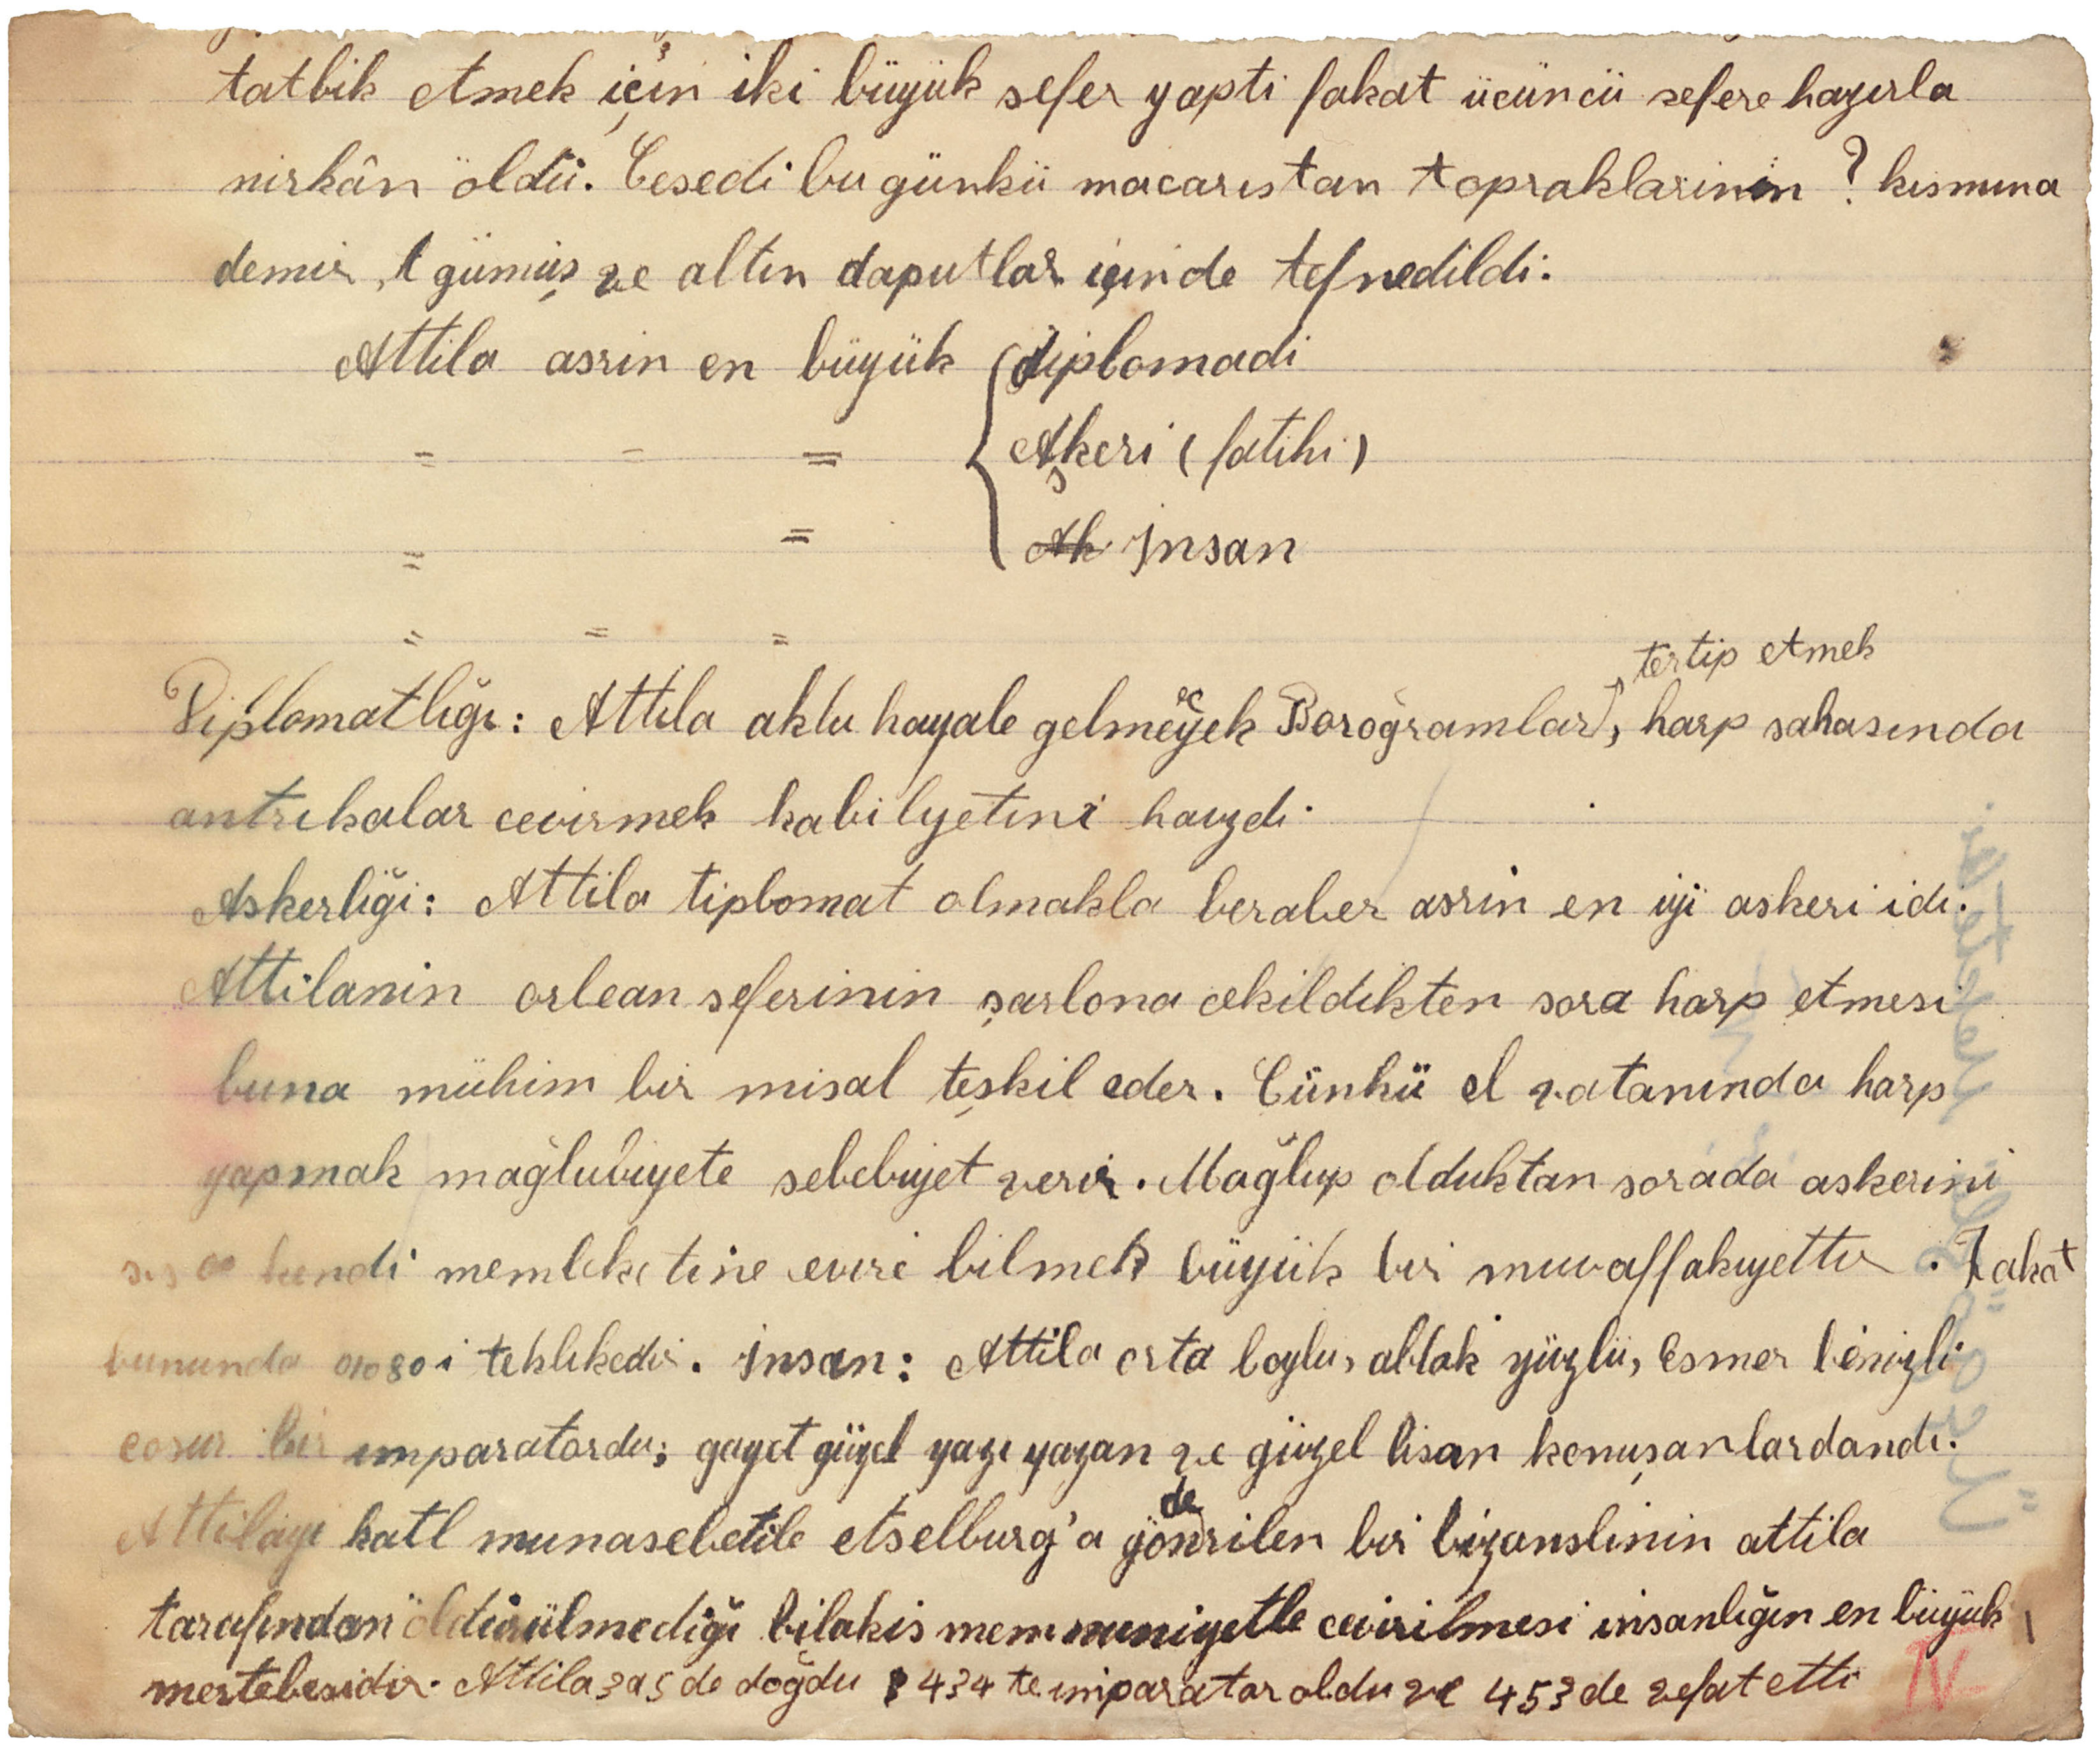 tatbik etmek için iki büyük sefer yapti fakat ücüncü sefere hazırla
nirkân öldü. Cesedi bu günkü macarıstan topraklarinin ? kısmına
demir, gümüş ve altın daputlar içinde tefnedildi.
Attila asrin en büyük { diplomadi
= = = Askeri (fatihi)
= = Ak İnsan
= = =
tertip etmek
Diplomatlığı: Attila aklu hayale gelmeyecek Boroğramlar, harp sahasında
antrikalar cevirmek kabilyetini haizdi.
Askerliği: Attila tiplomat olmakla beraber asrin en iyi askeri idi.
Attilanin orlean seferinin şarlona cekildikten sora harp etmesi
buna mühim bir misal teşkil eder. Cünkü el vatanında harp
yapmak mağlubiyete sebebiyet verir. Mağlup olduktan sorada askerini
kendi memleketine evire bilmek büyük bir muvaffakiyettir. Fakat
bununda tehlikedir. İnsan: Attila orta boylu, ablak yüzlü, Esmer benizli
cosur bir imparatordu; gayet güzel yazı yazan ve güzel lisan konuşanlardandı.
Attilayı katl munasebetile etselburg'a gönderilen bir bizanslinin attila
tarafından öldürülmediği bilakis memnuniyetle cevirilmesi insanlığın en büyük
mertebesidir. Attila 395 de doğdu 434 te imparator oldu ve 453 de vefat etti
IV